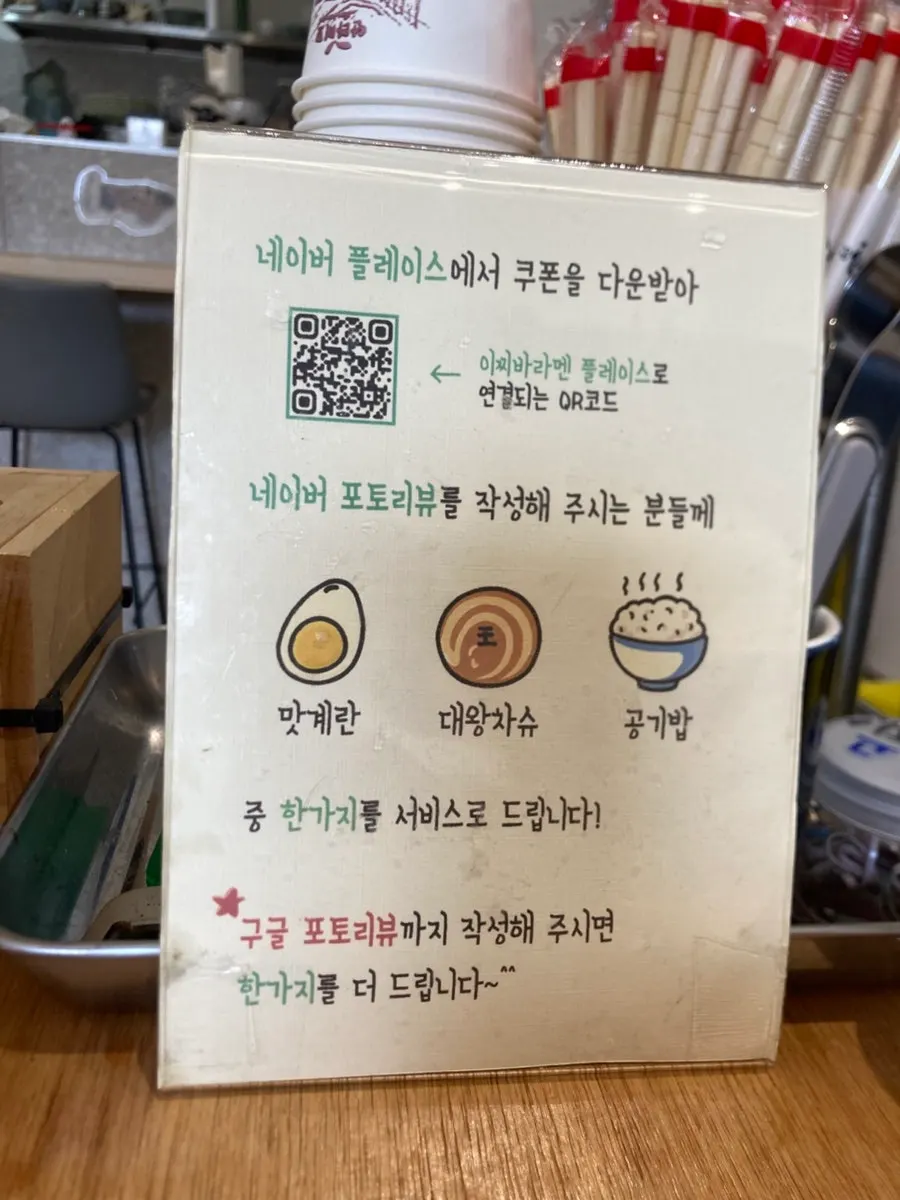 네이버 플레이스에서 쿠폰을 다운받아
← 이찌바라멘 플레이스로
연결되는 QR코드
네이버 포토리뷰를 작성해 주시는 분들께
맛계란 대왕차슈 공기밥
중 한가지를 서비스로 드립니다!
구글 포토리뷰까지 작성해 주시면
한가지를 더 드립니다~^^